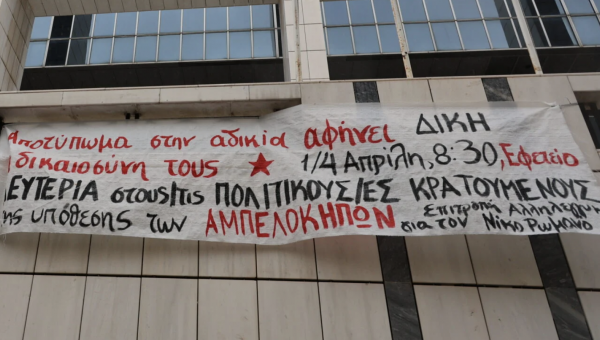 Αποτύπωμα στην αδικία αφήνει ΔΙΚΗ
δικαιοσύνη τους ★ 1/4 Απρίλη, 8:30, Εφετείο
ΛΕΥΤΕΡΙΑ στους/τις ΠΟΛΙΤΙΚΟΥΣ/ΕΣ ΚΡΑΤΟΥΜΕΝΟΥΣ
της υπόθεσης των ΑΜΠΕΛΟΚΗΠΩΝ Επιτροπή Αλληλεγγ
για τον Νίκο Ρωμανό